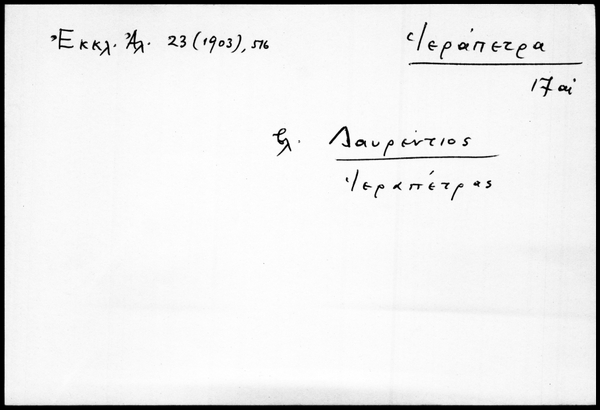 Ἐκκλ. Ἀλ. 23 (1903), 516
Ἱεράπετρα
17 αἰ
βλ. Λαυρέντιος
Ἱεραπέτρας